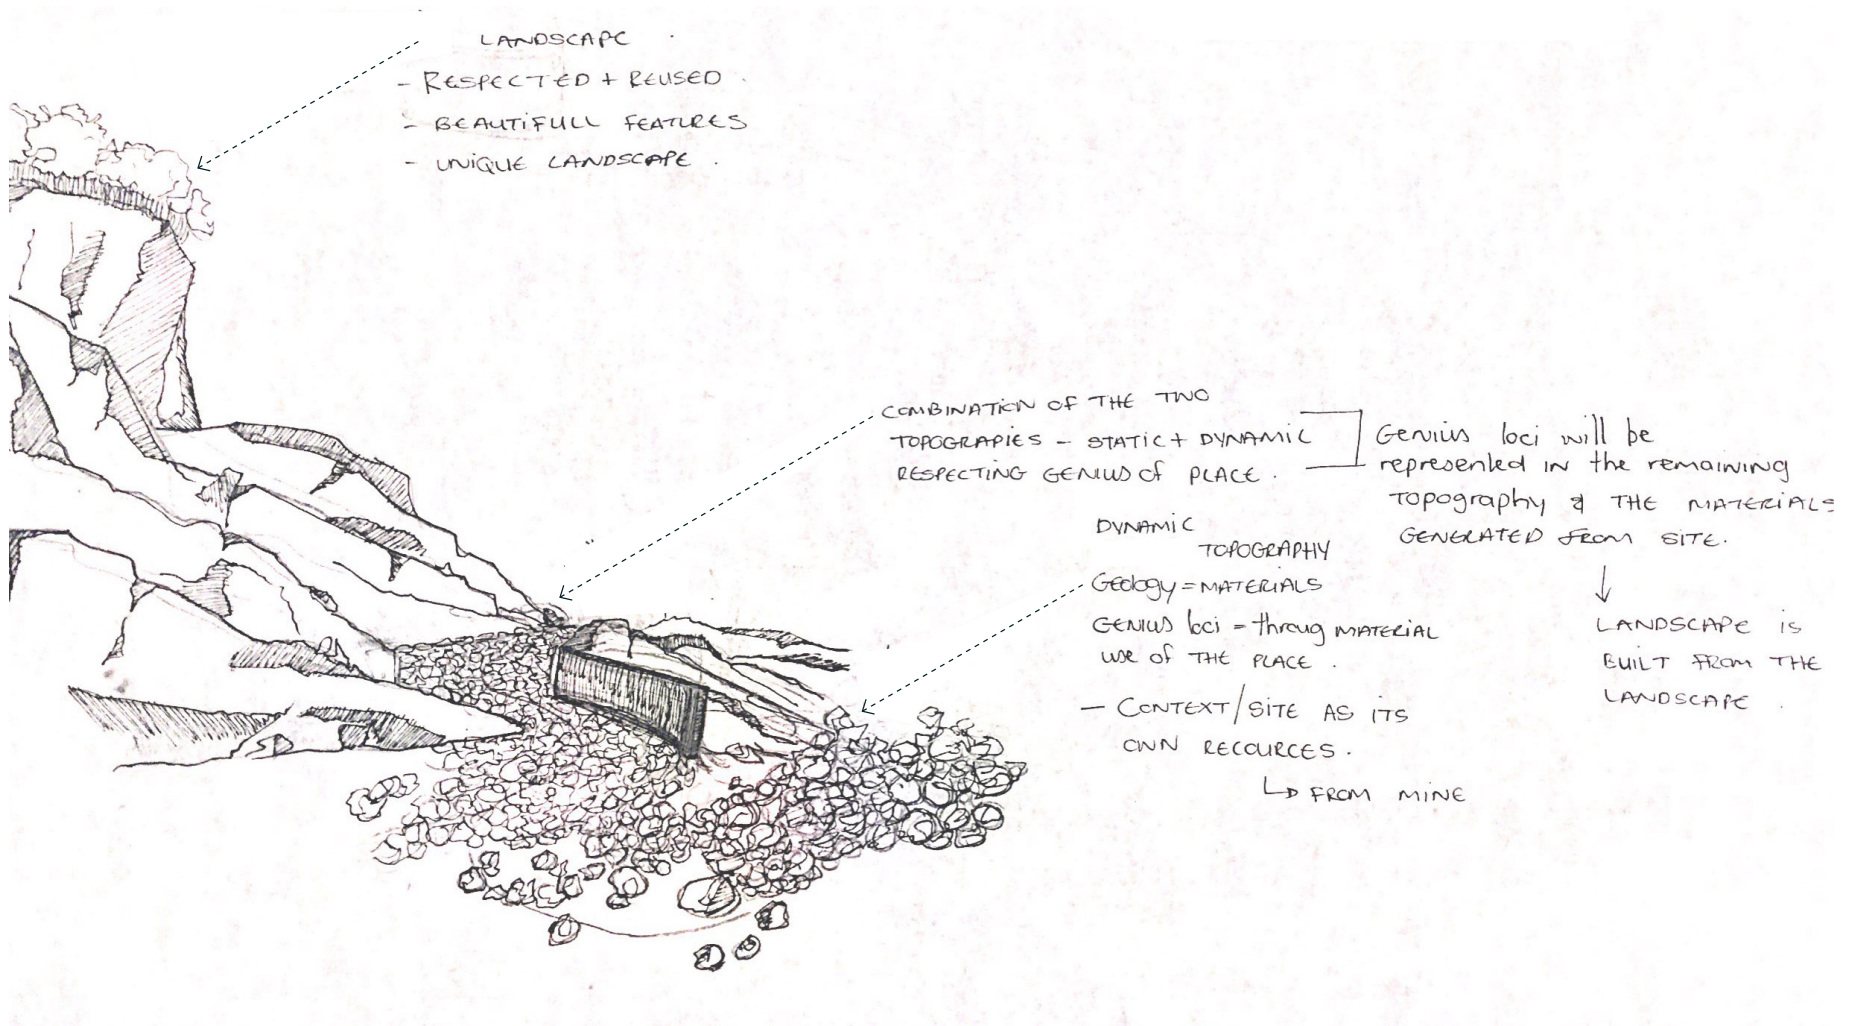 LANDSCAPE
- RESPECTED + REUSED
- BEAUTIFULL FEATURES
- UNIQUE LANDSCAPE.
COMBINATION OF THE TWO
TOPOGRAPIES - STATIC + DYNAMIC
RESPECTING GENIUS OF PLACE.
Genius loci will be
represented in the remaining
Topography & THE MATERIALS
GENERATED FROM SITE.
↓
LANDSCAPE IS
BUILT FROM THE
LANDSCAPE.
DYNAMIC
TOPOGRAPHY
Geology = MATERIALS
GENIUS loci = throug MATERIAL
use of THE PLACE.
- CONTEXT/SITE AS ITS
OWN RECOURCES.
↳ FROM MINE